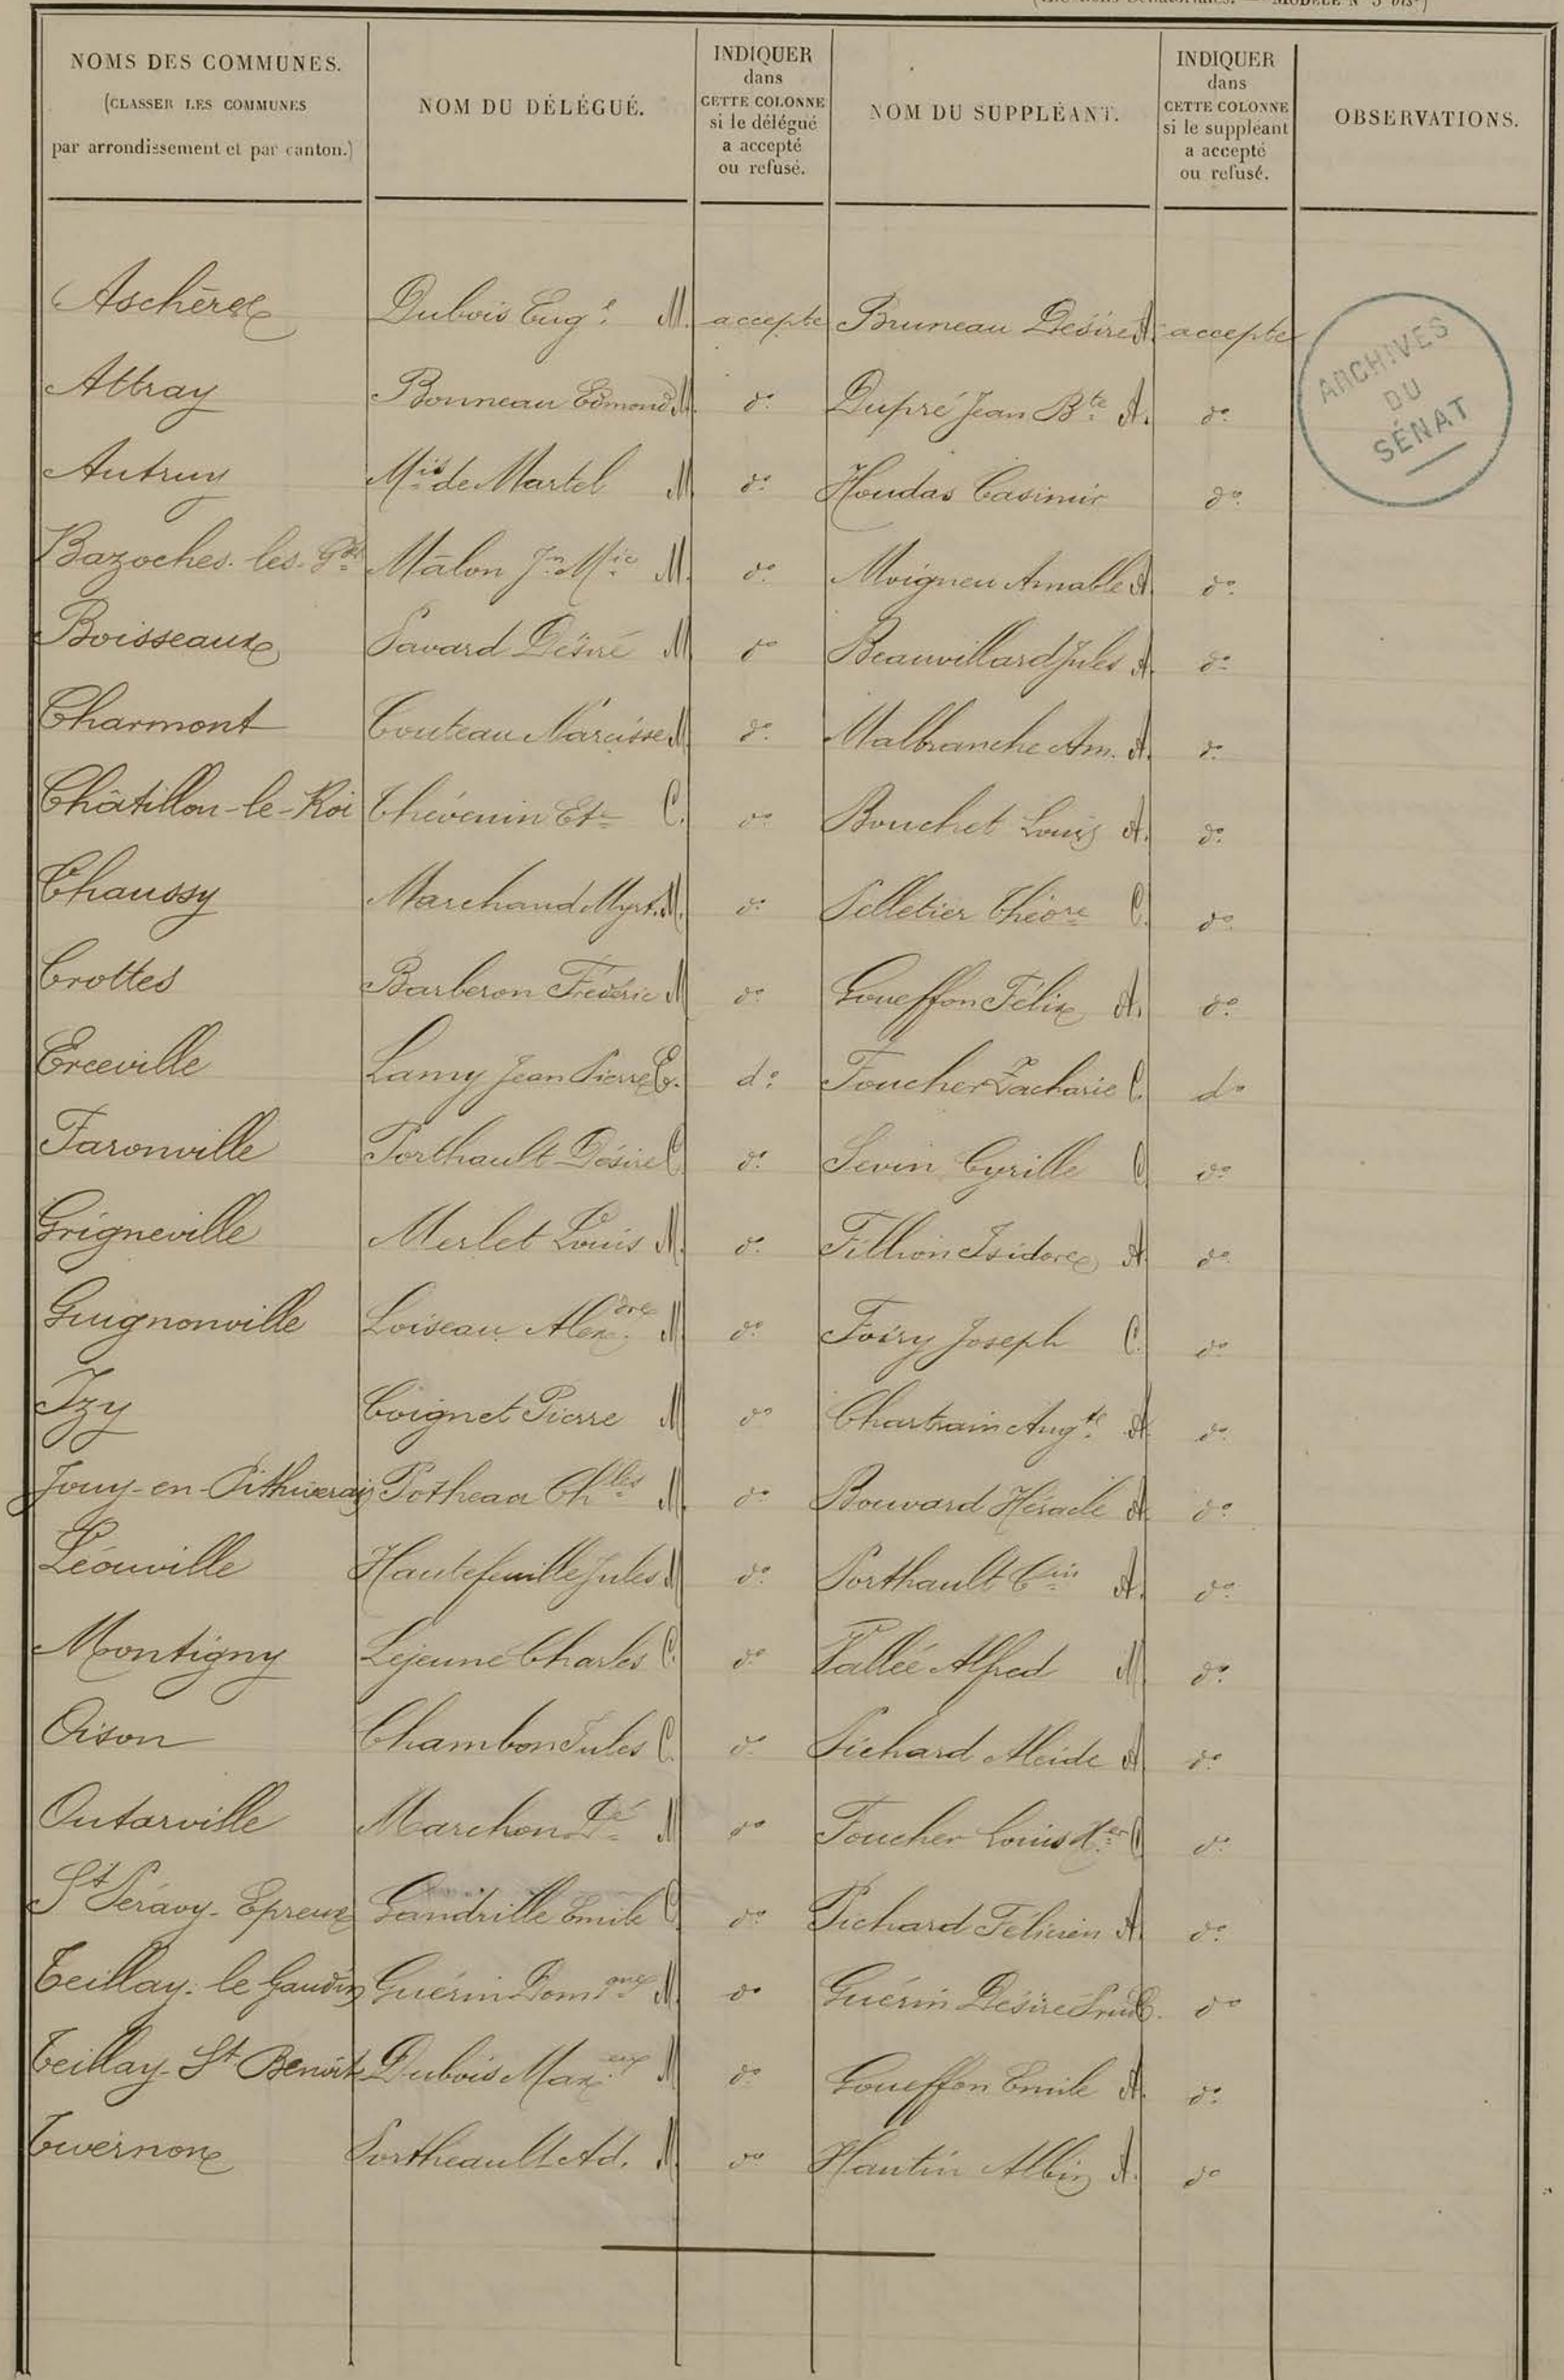 NOMS DES COMMUNES.
(CLASSER LES COMMUNES
par arrondissement et par canton.)
NOM DU DÉLÉGUÉ.
INDIQUER
dans
CETTE COLONNE
si le délégué
a accepté
ou refusé.
NOM DU SUPPLÉANT.
INDIQUER
dans
CETTE COLONNE
si le suppléant
a accepté
ou refusé.
OBSERVATIONS.
Aschères Dubois Eug.e M. accepte Bruneau Désiré A. accepte
Attray Bonneau Edmond M. do Dupré Jean Bte A. do
Autruy Mis de Martel M. do Houdas Casimir do
Bazoches-les-Gdes Mâlon Jn Mie M. do Moigneu Amable A. do
Boisseaux Savard Désiré M. do Beauvillard Jules A. do
Charmont Couteau Narcisse M. do Malbranche Am. A. do
Châtillon-le-Roi Thévenin Ete C. do Bouchet Louis A. do
Chaussy Marchand Myrt. M. do Pelletier Théore C. do
Crottes Barberon Frédéric M do Goueffon Félix A. do
Erceville Lamy Jean Pierre C. do Foucher Zacharie C. do
Faronville Porthault Désiré C. do Sevin Cyrille C. do
Grigneville Merlet Louis M. do Fillion Isidore A. do
Guignonville Loiseau Alexdre M. do Foiry Joseph C. do
Izy Coignet Pierre M do Chartrain Augte A. do
Jouy-en-Pithiverais Potheau Chles M. do Bouvard Héracle A. do
Léouville Hautefeuille Jules M do Porthault Cin A. do
Montigny Lejeune Charles C. do Vallée Alfred M. do
Oison Chambon Jules C. do Pichard Alcide A. do
Outarville Marchon Dé M do Foucher Louis Xer C. do
St Péravy-Epreux Gandrille Emile C. do Pichard Félicien A. do
Teillay-le Gaudin Guérin Domique M. do Guérin Désiré Prud C. do
Teillay-St Benoît Dubois Max M do Goueffon Emile A. do
Tivernon Portheault Ad. M. do Hautin Albin A. do
ARCHIVES
DU
SÉNAT